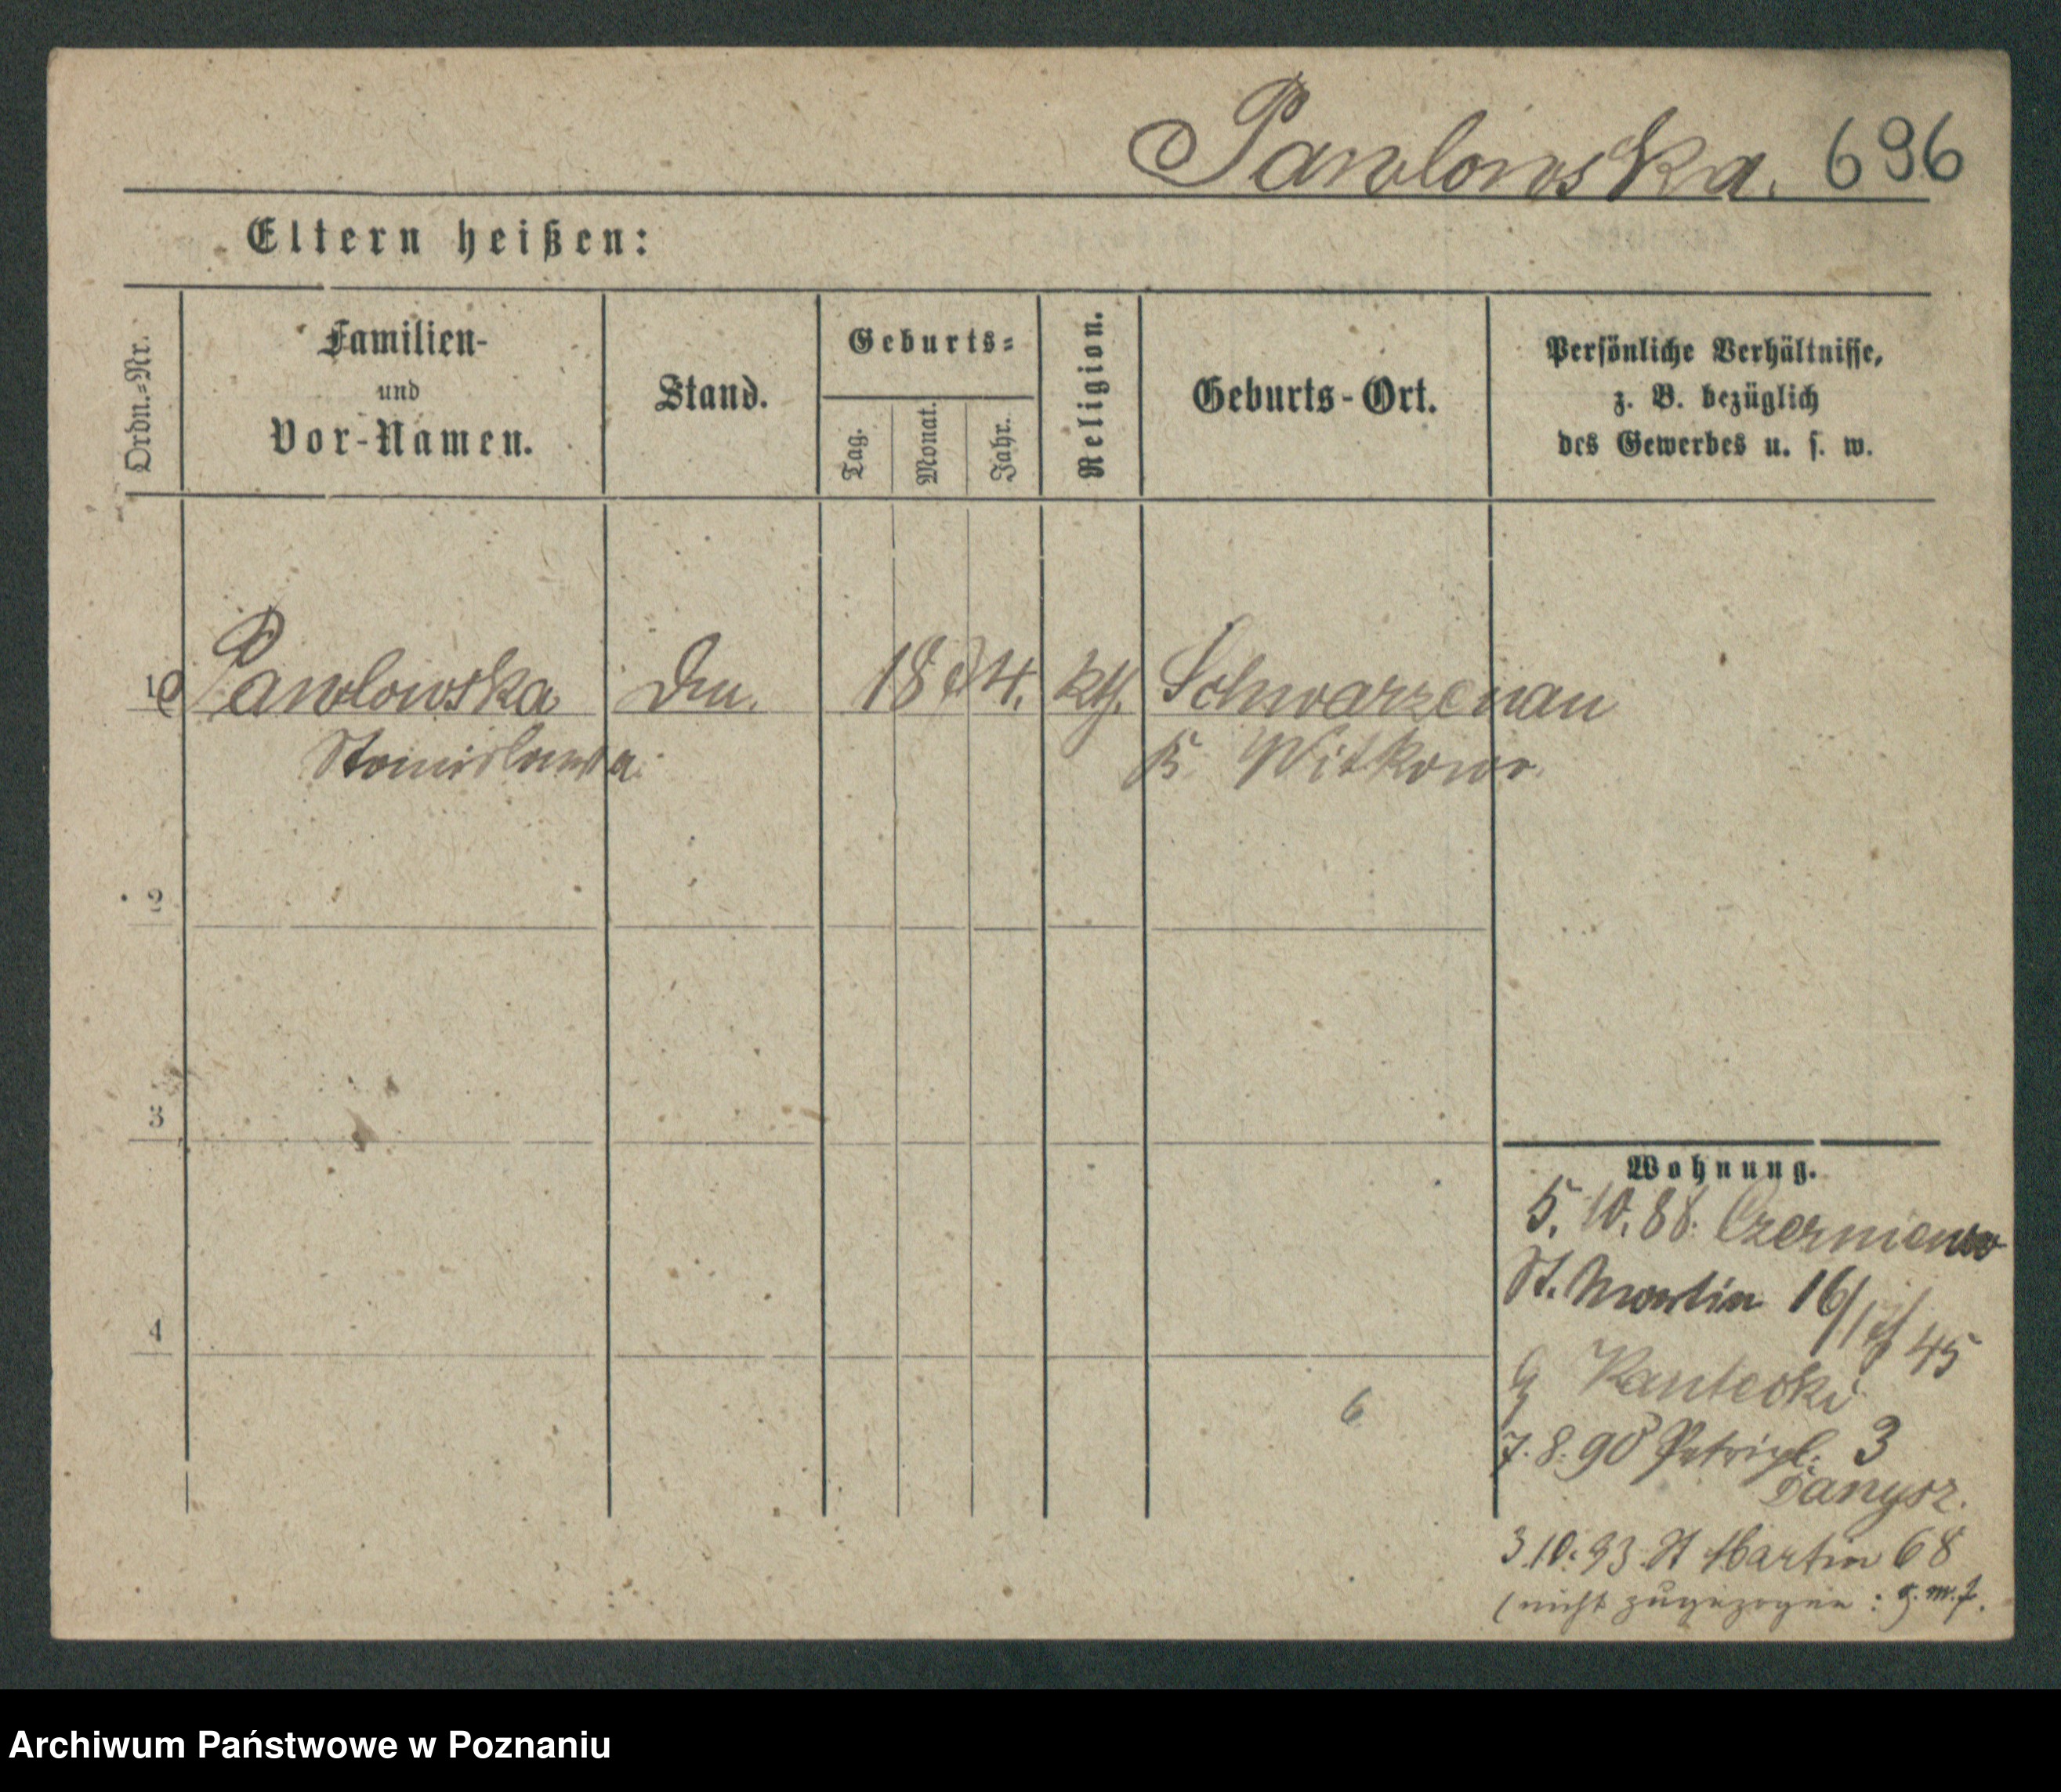 Pawlowska. 696
Eltern heißen:
Ordn.-Nr.
Familien-
und
Vor-Namen.
Stand.
Geburts-
Tag.
Monat.
Jahr.
Religion.
Geburts-Ort.
Persönliche Verhältnisse,
z. B. bezüglich
des Gewerbes u. s. w.
1 Pawlowska 18 4. kth. Schwarzenau
Stanislawa K. Witkowo.
2
3
4
Wohnung.
5. 10. 88. Czerniewo
St. Martin 16/17 45
Kantecki
6
7. 8. 90 Petripl. 3
Danysz.
3.10.93 St Martin 68
(nicht zugezogen:
Archiwum Państwowe w Poznaniu